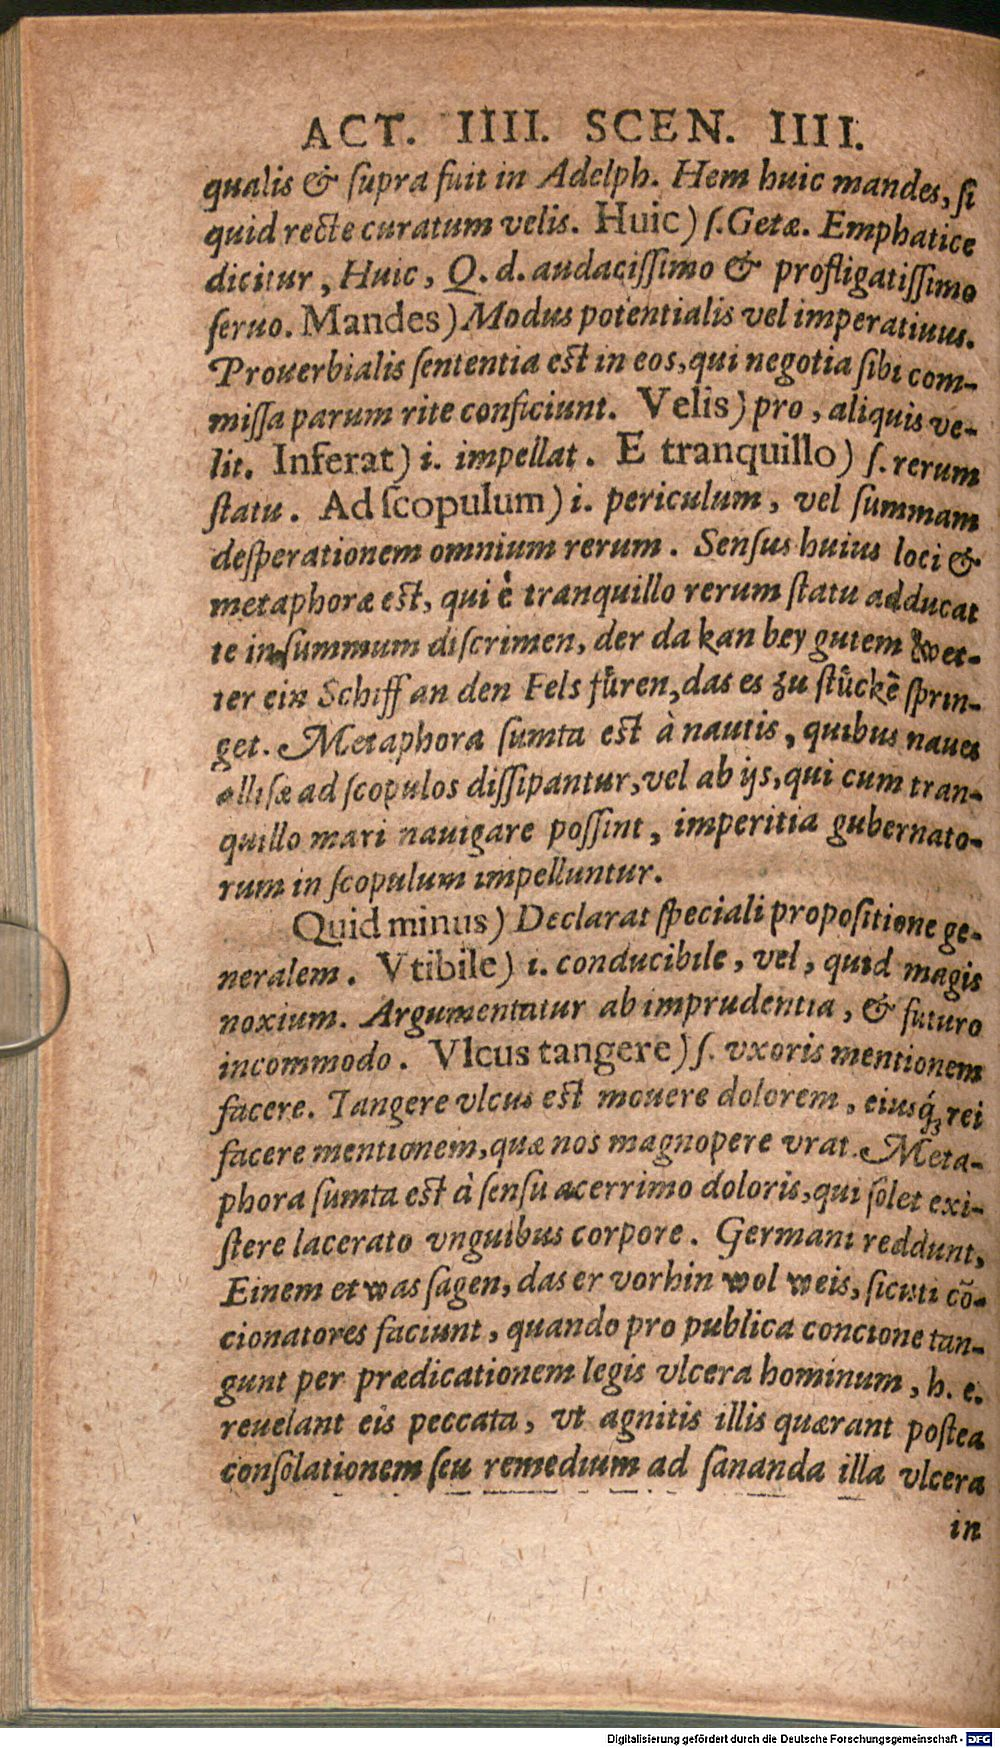 ACT. IIII. SCEN. IIII.
qualis & ſupra fuit in Adelph. Hem huic mandes, ſi
quid recte curatum velis. Huic) ſ. Getæ. Emphatice
dicitur, Huic, Q. d. audaciſſimo & profligatiſſimo
ſeruo. Mandes) Modus potentialis vel imperatiuus.
Prouerbialis ſententia est in eos, qui negotia ſibi com-
miſſa parum rite conficiunt. Velis) pro, aliquis ve-
lit. Inferat) i. impellat. E tranquillo) ſ. rerum
ſtatu. Ad ſcopulum) i. periculum, vel ſummam
deſperationem omnium rerum. Senſus huius loci &
metaphoræ est, qui è tranquillo rerum ſtatu adducat
te in ſummum diſcrimen, der da kan bey gutem wet-
ter ein Schiff an den Fels fuͤren, das es zu ſtuͤckẽ ſprin-
get. Metaphora ſumta est à nautis, quibus naues
alliſæ ad ſcopulos diſſipantur, vel ab ijs, qui cum tran-
quillo mari nauigare poſſint, imperitia gubernato-
rum in ſcopulum impelluntur.
Quid minus) Declarat ſpeciali propoſitione ge-
neralem. Vtibile) i. conducibile, vel, quid magis
noxium. Argumentatur ab imprudentia, & futuro
incommodo. Vlcus tangere) ſ. vxoris mentionem
facere. Tangere vlcus est mouere dolorem, eiusq́ꝫ rei
facere mentionem, quæ nos magnopere vrat. Meta-
phora ſumta est à ſenſu acerrimo doloris, qui ſolet exi-
ſtere lacerato vnguibus corpore. Germani reddunt,
Einem etwas ſagen, das er vorhin wol weis, ſicuti cõ-
cionatores faciunt, quando pro publica concione tan-
gunt per prædicationem legis vlcera hominum, h. e.
reuelant eis peccata, vt agnitis illis quærant poſtea
conſolationem ſeu remedium ad ſananda illa vlcera
in
Digitalisierung gefördert durch die Deutsche Forschungsgemeinschaft - DFG